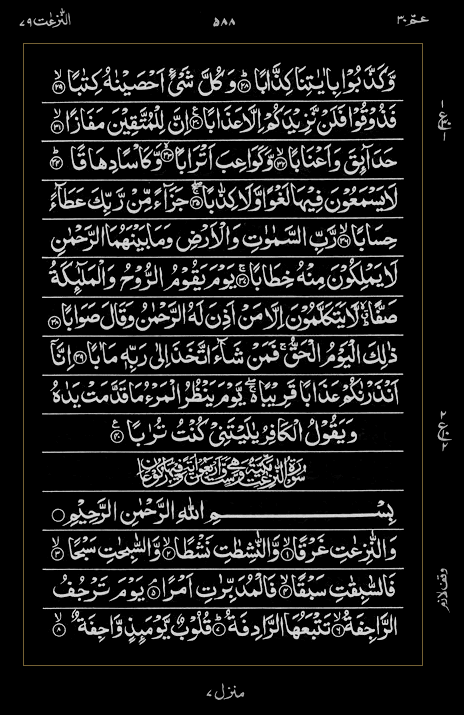 عمّ ٣٠ ٥٨٨ النّٰزعٰت ٧٩
وَّكَذَّبُوْا بِاٰيٰتِنَا كِذَّابًا ۙ﴿۲۸﴾ وَكُلَّ شَیْءٍ اَحْصَيْنٰهُ كِتٰبًا ۙ﴿۲۹﴾
فَذُوْقُوْا فَلَنْ نَّزِيْدَكُمْ اِلَّا عَذَابًا ﴿۳۰﴾ اِنَّ لِلْمُتَّقِيْنَ مَفَازًا ۙ﴿۳۱﴾
حَدَآئِقَ وَاَعْنَابًا ۙ﴿۳۲﴾ وَّكَوَاعِبَ اَتْرَابًا ۙ﴿۳۳﴾ وَّكَاْسًا دِهَاقًا ؕ﴿۳۴﴾
لَا يَسْمَعُوْنَ فِيْهَا لَغْوًا وَّلَا كِذّٰبًا ۚ﴿۳۵﴾ جَزَآءً مِّنْ رَّبِّكَ عَطَآءً
حِسَابًا ۙ﴿۳۶﴾ رَّبِّ السَّمٰوٰتِ وَالْاَرْضِ وَمَا بَيْنَهُمَا الرَّحْمٰنِ
لَا يَمْلِكُوْنَ مِنْهُ خِطَابًا ۚ﴿۳۷﴾ يَوْمَ يَقُوْمُ الرُّوْحُ وَالْمَلٰٓئِكَةُ
صَفًّا ۙۗؕ لَّا يَتَكَلَّمُوْنَ اِلَّا مَنْ اَذِنَ لَهُ الرَّحْمٰنُ وَقَالَ صَوَابًا ﴿۳۸﴾
ذٰلِكَ الْيَوْمُ الْحَقُّ ۚ فَمَنْ شَآءَ اتَّخَذَ اِلٰى رَبِّهٖ مَاٰبًا ﴿۳۹﴾ اِنَّاۤ
اَنْذَرْنٰكُمْ عَذَابًا قَرِيْبًا ۚۖ يَّوْمَ يَنْظُرُ الْمَرْءُ مَا قَدَّمَتْ يَدٰهُ
وَيَقُوْلُ الْكٰفِرُ يٰلَيْتَنِیْ كُنْتُ تُرٰبًا ﴿۴۰﴾
سُوْرَةُ النّٰزِعٰتِ مَكِّيَّةٌ وَّهِیَ سِتٌّ وَّاَرْبَعُوْنَ اٰيَةً وَّفِيْهَا رُكُوْعَانِ
بِسْمِ اللّٰهِ الرَّحْمٰنِ الرَّحِيْمِ
وَالنّٰزِعٰتِ غَرْقًا ۙ﴿۱﴾ وَّالنّٰشِطٰتِ نَشْطًا ۙ﴿۲﴾ وَّالسّٰبِحٰتِ سَبْحًا ۙ﴿۳﴾
فَالسّٰبِقٰتِ سَبْقًا ۙ﴿۴﴾ فَالْمُدَبِّرٰتِ اَمْرًا ۘ﴿۵﴾ يَوْمَ تَرْجُفُ
الرَّاجِفَةُ ۙ﴿۶﴾ تَتْبَعُهَا الرَّادِفَةُ ؕ﴿۷﴾ قُلُوْبٌ يَّوْمَئِذٍ وَّاجِفَةٌ ۙ﴿۸﴾
وقف لازم
منزل ٧